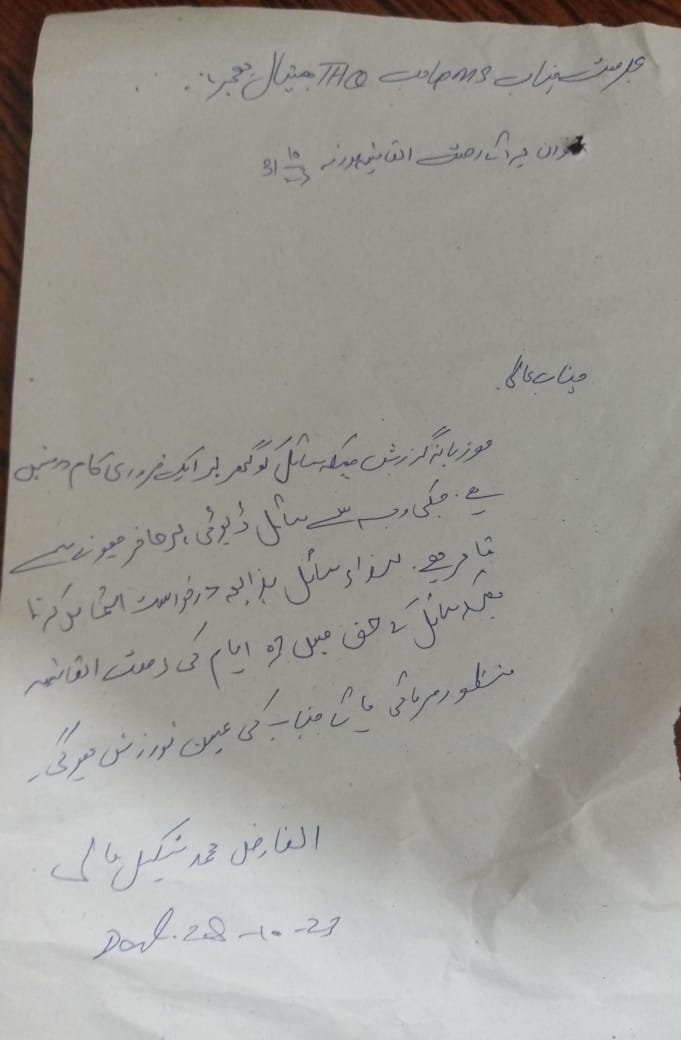 بخدمت جناب MS صاحب THQ ہسپتال بھمبر
عنوان برائے رخصت اتفاقیہ مورخہ 31 10 23
جناب عالی
مودبانہ گزارش ہیکہ سائل کو گھر پر ایک ضروری کام درپیش
ہے۔ جسکی وجہ سے سائل ڈیوٹی پر حاضر ہونے سے
قاصر ہے۔ لہذاء سائل بذریعہ درخواست التماس کرتا
ہیکہ سائل کے حق میں ایام کی رخصت اتفاقیہ
منظور فرمائی جائے جناب کی عین نوازش ہوگی۔
العارض محمد شکیل مالی
Dated. 28-10-23